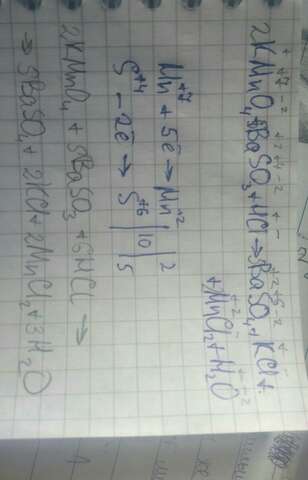 + +7 -2 +2 +4 -2 + - +2 +6 -2 + -
2KMnO₄+5BaSO₃+HCl→5BaSO₄+KCl+
+2 - + -2
+2MnCl₂+H₂O
Mn⁺⁷ + 5e̅ → Mn⁺² | 10 | 2
S⁺⁴ - 2e̅ → S⁺⁶ | 5
2KMnO₄ + 5BaSO₃ + 6HCl →
→ 5BaSO₄ + 2KCl + 2MnCl₂ + 3H₂O